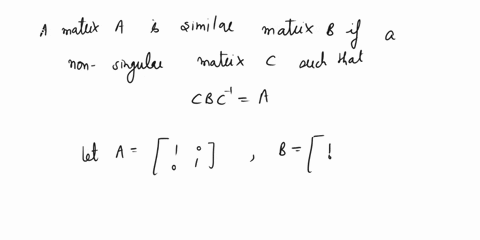 A matrix A is similar matrix B if a
non-singular matrix C such that
CBC⁻¹ = A
let A = [ 1 0 0 1 ] , B = [ 1